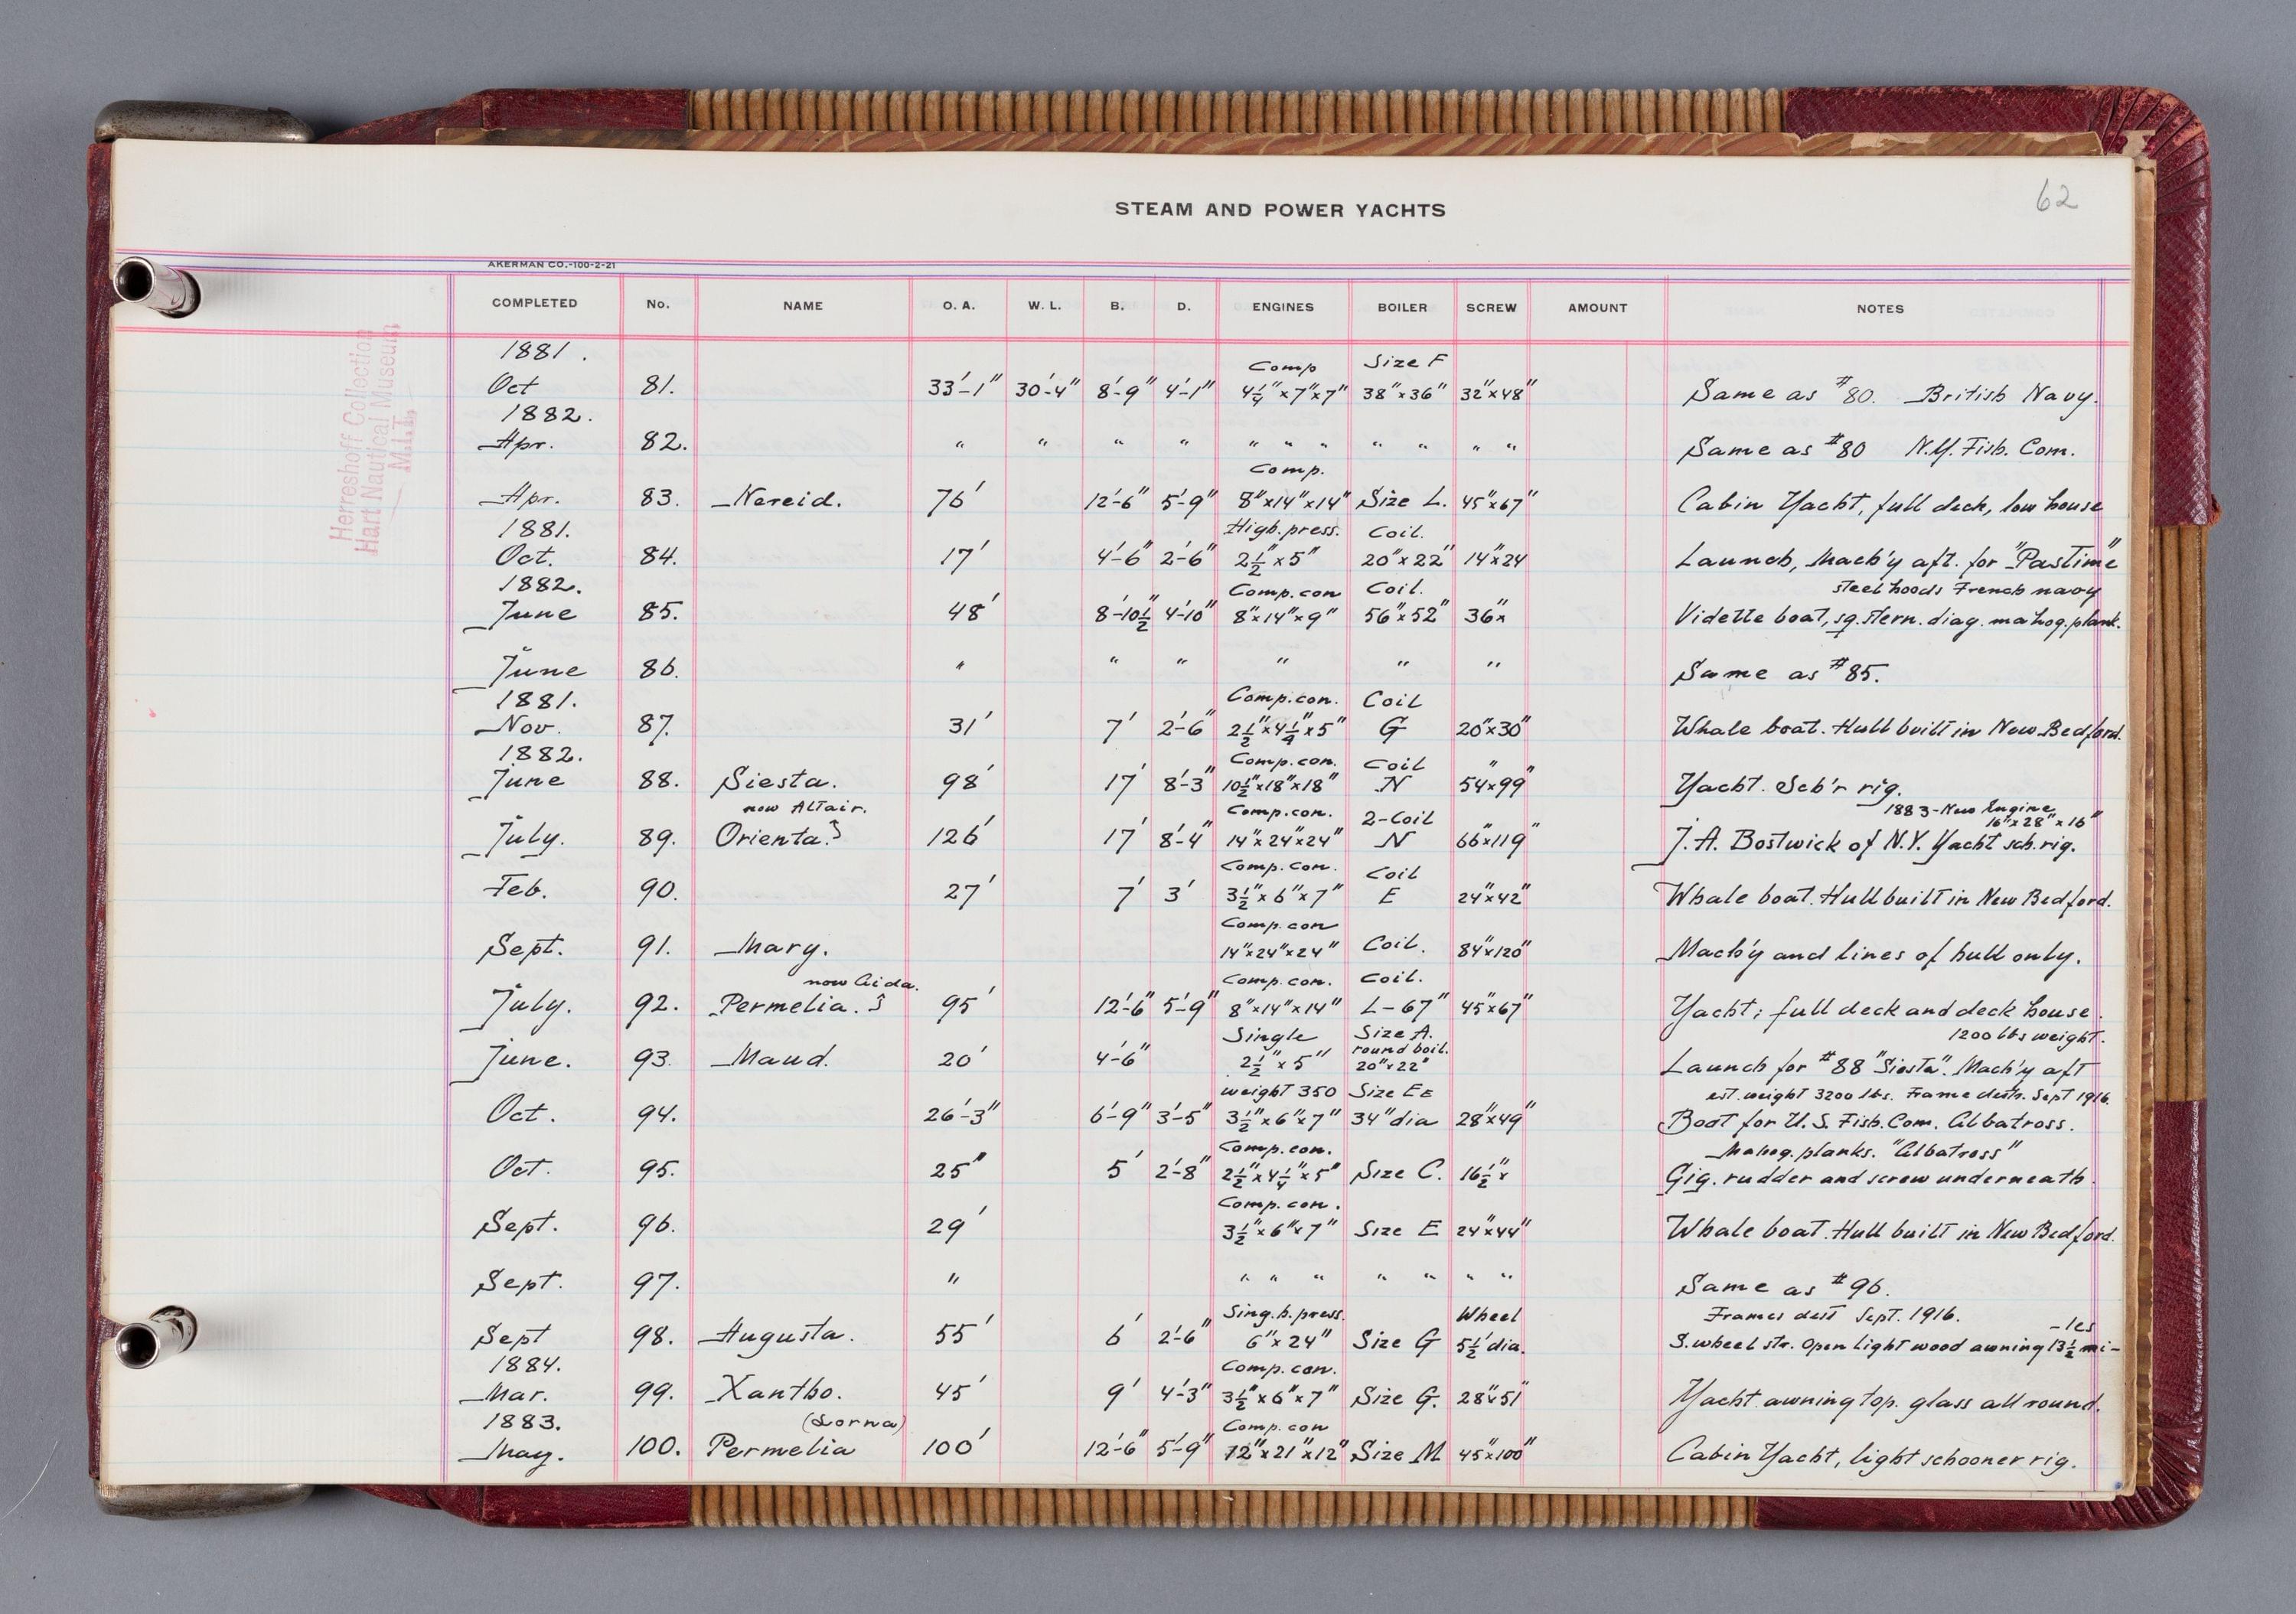 62
STEAM AND POWER YACHTS
AKERMAN CO.-100-2-21
COMPLETED No. NAME O. A. W. L. B. D. ENGINES BOILER SCREW AMOUNT NOTES
Herreshoff Collection
Hart Nautical Museum
M.I.T.
1881. Comp Size F
Oct 81. 33'-1" 30'-4" 8'-9" 4'-1" 4¼"x7"x7" 38"x36" 32"x48" Same as #80. British Navy.
1882.
Apr. 82. " " " " " " " " " " " Same as #80 N.Y. Fish. Com.
Comp.
Apr. 83. Nereid. 76' 12'-6" 5'-9" 8"x14"x14" Size L. 45"x67" Cabin Yacht, full deck, low house
1881. High. press. Coil.
Oct. 84. 17' 4'-6" 2'-6" 2½"x5" 20"x22" 14"x24 Launch, Mach'y aft. for "Pastime"
1882. Comp. con Coil. steel hoods French navy
June 85. 48' 8'-10½ 4'-10" 8"x14"x9" 56"x52" 36"x Vidette boat, sq. stern. diag. mahog. plank.
June 86. " " " " " " Same as #85.
1881. Comp. con. Coil
Nov. 87. 31' 7' 2'-6" 2½"x4¼"x5" G 20"x30" Whale boat. Hull built in New Bedford.
1882. Comp. con. Coil
June 88. Siesta. 98' 17' 8'-3" 10½"x18"x18" N 54"x99" Yacht. Sch'r rig.
now Altair. Comp. con. 2-Coil 1883-New Engine
16"x28"x16"
July. 89. Orienta. 126' 17' 8'-4" 14"x24"x24" N 66"x119" J. A. Bostwick of N.Y. Yacht sch. rig.
Comp. con. Coil
Feb. 90. 27' 7' 3' 3½"x6"x7" E 24"x42" Whale boat. Hull built in New Bedford.
Comp. con
Sept. 91. Mary. 14"x24"x24" Coil. 84"x120" Mach'y and lines of hull only.
now Aida. Comp. con. Coil.
July. 92. Permelia. 95' 12'-6" 5'-9" 8"x14"x14" L-67" 45"x67" Yacht; full deck and deck house.
Single Size A. 1200 lbs weight.
round boil.
June. 93. Maud. 20' 4'-6" 2½"x5" 20"x22" Launch for #88 "Siesta". Mach'y aft
weight 350 Size EE est. weight 3200 lbs. Frame destr. Sept 1916.
Oct. 94. 26'-3" 6'-9" 3'-5" 3½"x6"x7" 34" dia 28"x49" Boat for U. S. Fish. Com. Albatross.
Comp. con. Mahog. planks. "Albatross"
Oct. 95. 25" 5' 2'-8" 2½"x4¼"x5" Size C. 16½"x Gig. rudder and screw underneath.
Comp. con.
Sept. 96. 29' 3½"x6"x7" Size E 24"x44" Whale boat. Hull built in New Bedford.
Sept. 97. " " " " " " " " Same as #96.
Sing. h. press. Wheel Frames dest Sept. 1916. -les
Sept 98. Augusta. 55' 6' 2'-6" 6"x24" Size G 5½' dia. S. wheel str. Open light wood awning 13½ mi-
1884. Comp. con.
Mar. 99. Xantho. 45' 9' 4'-3" 3½"x6"x7" Size G. 28"x51" Yacht awning top. glass all round.
1883. (Lorna) Comp. con
May. 100. Permelia 100' 12'-6" 5'-9" 12"x21"x12" Size M 45"x100" Cabin Yacht, light schooner rig.